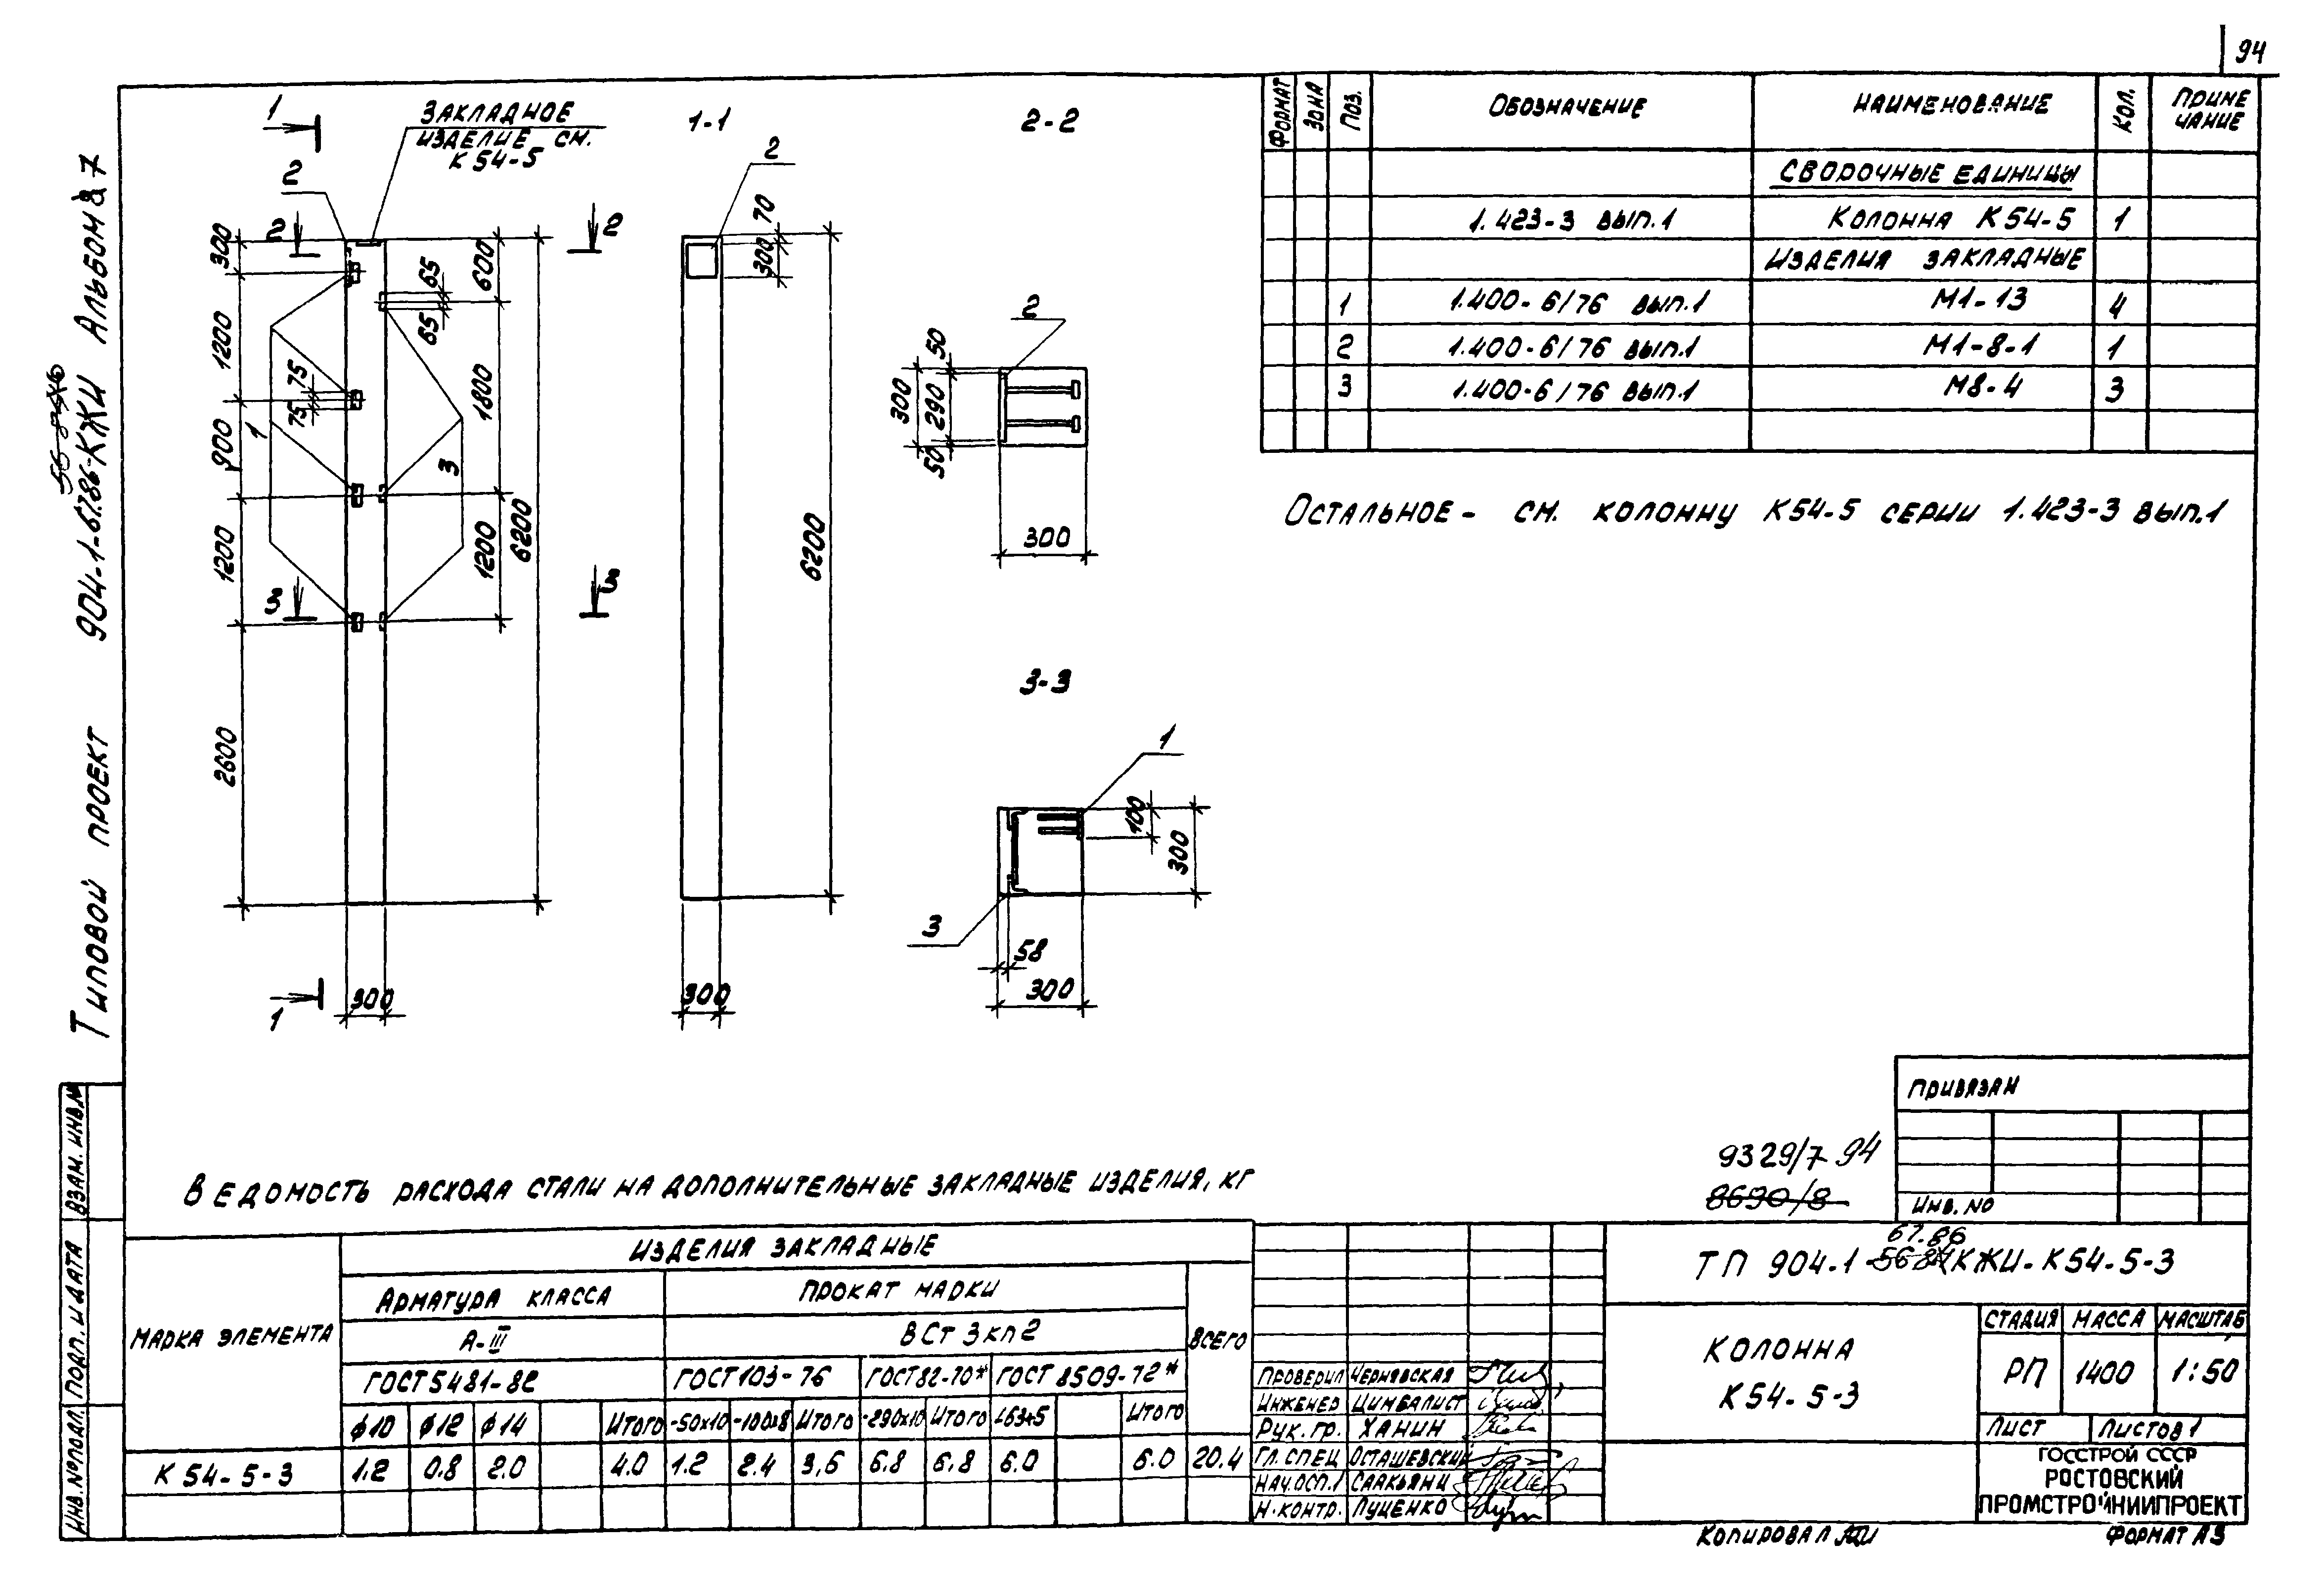 94
Типовой проект 904-1-67.86-КЖИ Альбом 7
1
Закладное
изделие см.
К 54-5
2
2
2
300
1200
75
75
900
1
1200
3
3
2600
65
65
600
1800
3
1200
6200
1
300
1-1
2
70
300
6200
300
2-2
2
50
290
50
300
300
3-3
1
100
300
3
58
300
Формат
Зона
Поз.
Обозначение
Наименование
Кол.
Приме
чание
Сборочные единицы
1.423-3 вып.1 Колонна К54-5 1
Изделия закладные
1 1.400-6/76 вып.1 М1-13 4
2 1.400-6/76 вып.1 М1-8-1 1
3 1.400-6/76 вып.1 М8-4 3
Остальное - см. колонну К54-5 серии 1.423-3 вып.1
Привязан
Инв. No
9329/7 94
8690/8
Ведомость расхода стали на дополнительные закладные изделия, кг
Марка элемента
Изделия закладные
Арматура класса
Прокат марки
Всего
А-III
ВСт 3кп2
ГОСТ 5481-82
ГОСТ 103-76
ГОСТ 82-70*
ГОСТ 8509-72*
ф10 ф12 ф14 Итого -50х10 -100х8 Итого -290х10 Итого L63х5 Итого
К 54-5-3 1.2 0.8 2.0 4.0 1.2 2.4 3,6 6.8 6,8 6.0 6.0 20.4
Проверил Чернявская
Инженер Цимбалист
Рук. гр. Ханин
Гл. спец Осташевский
Нач. осп.1 Саакьянц
Н. контр. Луценко
67.86
ТП 904-1-56.84 КЖИ-К54-5-3
Колонна
К54-5-3
Стадия Масса Масштаб
РП 1400 1:50
Лист Листов 1
ГОССТРОЙ СССР
РОСТОВСКИЙ
ПРОМСТРОЙНИИПРОЕКТ
Взам. инв.№
Подп. и дата
Инв. № подл.
Копировал
Формат А3